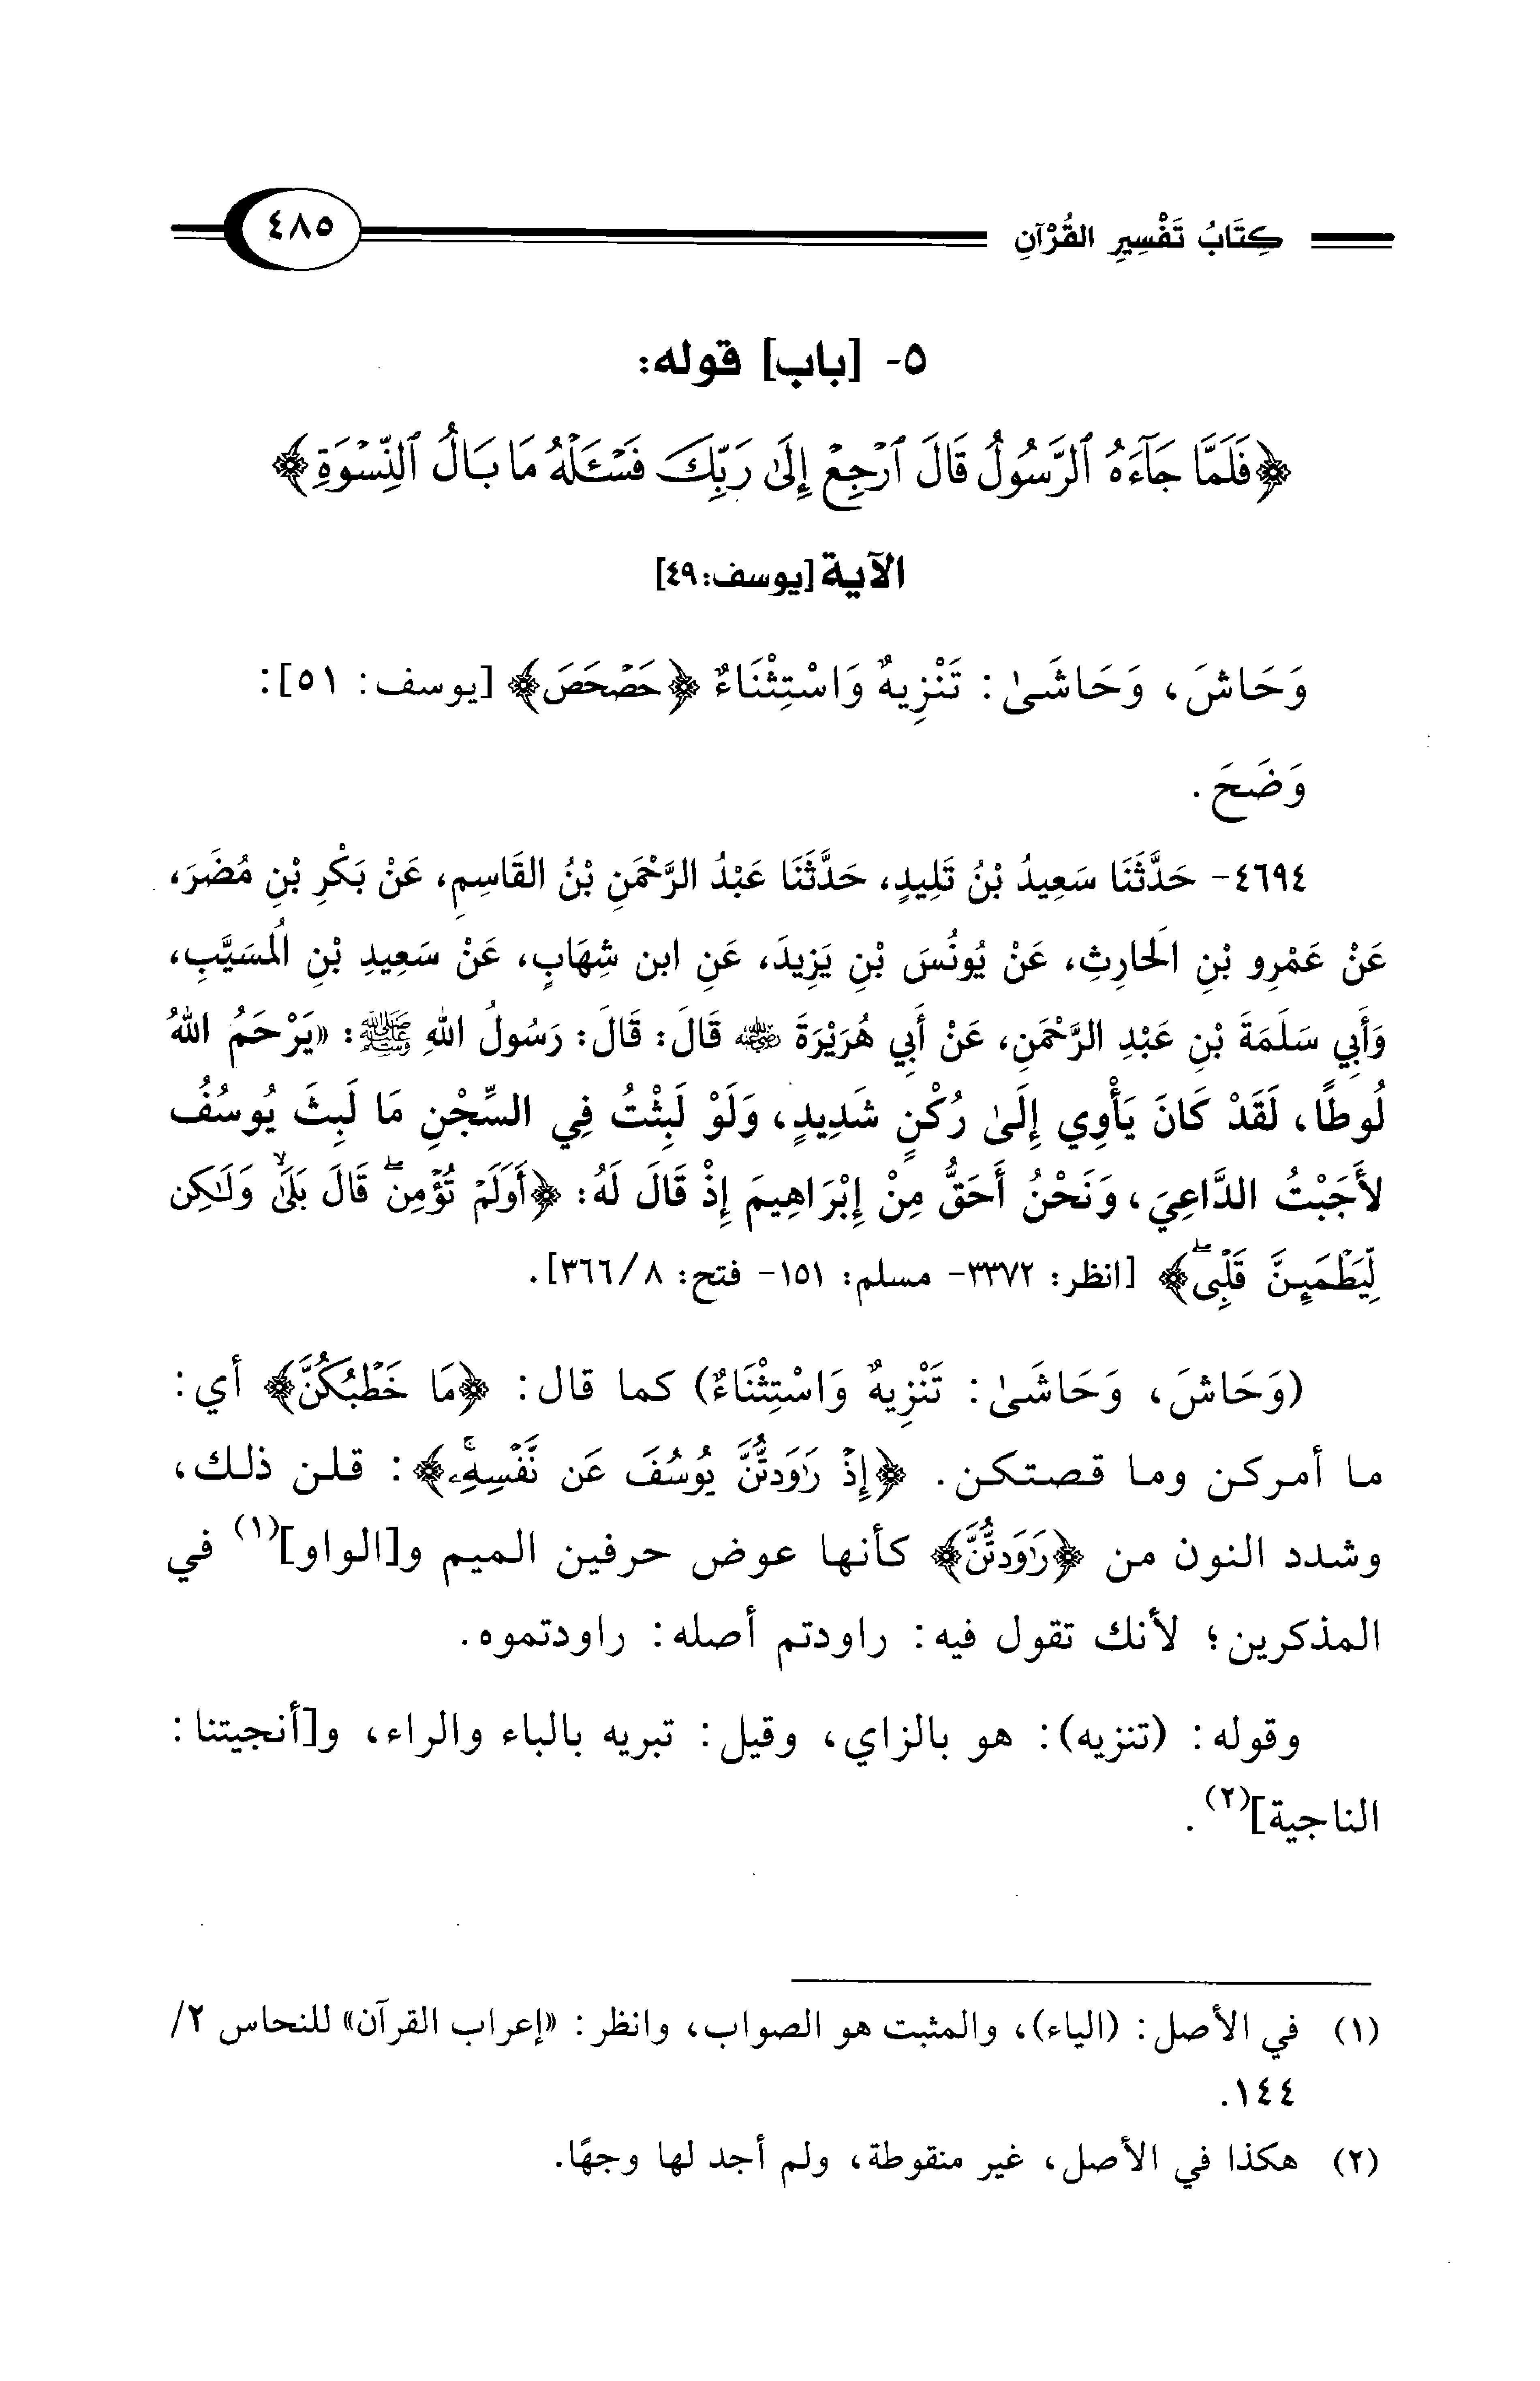 كِتَابُ تَفْسِيرِ القُرْآنِ
٤٨٥
٥- [باب] قوله:
﴿فَلَمَّا جَآءَهُ ٱلرَّسُولُ قَالَ ٱرْجِعْ إِلَىٰ رَبِّكَ فَسْـَٔلْهُ مَا بَالُ ٱلنِّسْوَةِ﴾
الآية [يوسف: ٤٩]
وَحَاشَ، وَحَاشَىٰ: تَنْزِيهٌ وَاسْتِثْنَاءٌ ﴿حَصْحَصَ﴾ [يوسف: ٥١]:
وَضَحَ.
٤٦٩٤- حَدَّثَنَا سَعِيدُ بْنُ تَلِيدٍ، حَدَّثَنَا عَبْدُ الرَّحْمَنِ بْنُ القَاسِمِ، عَنْ بَكْرِ بْنِ مُضَرَ،
عَنْ عَمْرِو بْنِ الَحارِثِ، عَنْ يُونُسَ بْنِ يَزِيدَ، عَنِ ابن شِهَابٍ، عَنْ سَعِيدِ بْنِ الُمسَيَّبِ،
وَأَبِي سَلَمَةَ بْنِ عَبْدِ الرَّحْمَنِ، عَنْ أَبِي هُرَيْرَةَ رضي الله عنه قَالَ: قَالَ: رَسُولُ اللهِ ﷺ: «يَرْحَمُ اللهُ
لُوطًا، لَقَدْ كَانَ يَأْوِي إِلَىٰ رُكْنٍ شَدِيدٍ، وَلَوْ لَبِثْتُ فِي السِّجْنِ مَا لَبِثَ يُوسُفُ
لأَجَبْتُ الدَّاعِيَ، وَنَحْنُ أَحَقُّ مِنْ إِبْرَاهِيمَ إِذْ قَالَ لَهُ: ﴿أَوَلَمْ تُؤْمِنۖ قَالَ بَلَىٰۙ وَلَٰكِن
لِّيَطْمَئِنَّ قَلْبِىۖ﴾ [انظر: ٣٣٧٢- مسلم: ١٥١- فتح: ٨/٣٦٦].
(وَحَاشَ، وَحَاشَىٰ: تَنْزِيهٌ وَاسْتِثْنَاءٌ) كما قال: ﴿مَا خَطْبُكُنَّ﴾ أي:
ما أمركن وما قصتكن. ﴿إِذْ رَٰوَدتُّنَّ يُوسُفَ عَن نَّفْسِهِۦۚ﴾: قلن ذلك،
وشدد النون من ﴿رَٰوَدتُّنَّ﴾ كأنها عوض حرفين الميم و[الواو](١) في
المذكرين؛ لأنك تقول فيه: راودتم أصله: راودتموه.
وقوله: (تنزيه): هو بالزاي، وقيل: تبريه بالباء والراء، و[أنجيتنا:
الناجية](٢).
(١) في الأصل: (الياء)، والمثبت هو الصواب، وانظر: «إعراب القرآن» للنحاس ٢/
١٤٤.
(٢) هكذا في الأصل، غير منقوطة، ولم أجد لها وجهًا.